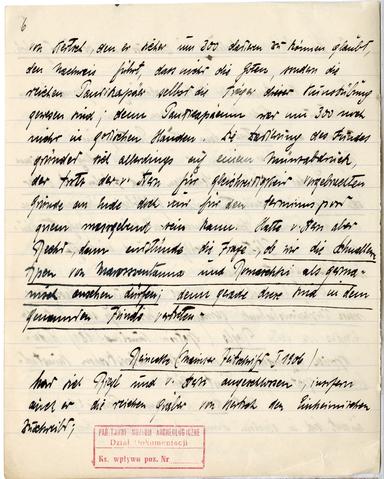 6
von Kertsch, den er sicher um 300 datieren zu können glaubt,
den Nachweis führt, dass nicht die Goten, sondern die
reichen Pantikapäer selbst die Träger dieser Kunstübung
gewesen sind; denn Pantikapaeum war um 300 noch
nicht in gotischen Händen. Die Datierung des Fundes
gründet sich allerdings auf einen Münzabdruck,
der trotz der v. Stern für Gleichzeitigkeit vorgebrachten
Gründe am Ende doch nur für den terminus post
quem massgebend sein kann. Hätte v. Stern aber
Recht, dann entstünde die Frage, ob wir die Schnallen
Typen von Maroszentanna und als germa-
nisch ansehen dürfen; denn gerade diese sind in dem
genannten Funde vertreten.
Reinecke (Mainzer Festschrift I 1906)
hat sich und v. Stern angeschlossen, insofern
auch er die reichen Gräber von Kertsch den Einheimischen
zuschreibt;
PAŃSTWOWE MUZEUM ARCHEOLOGICZNE
Dział Dokumentacji
Ks. wpływu poz. Nr